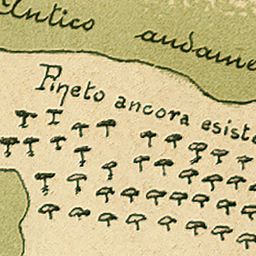 Antico andame
Pineto ancora esiste